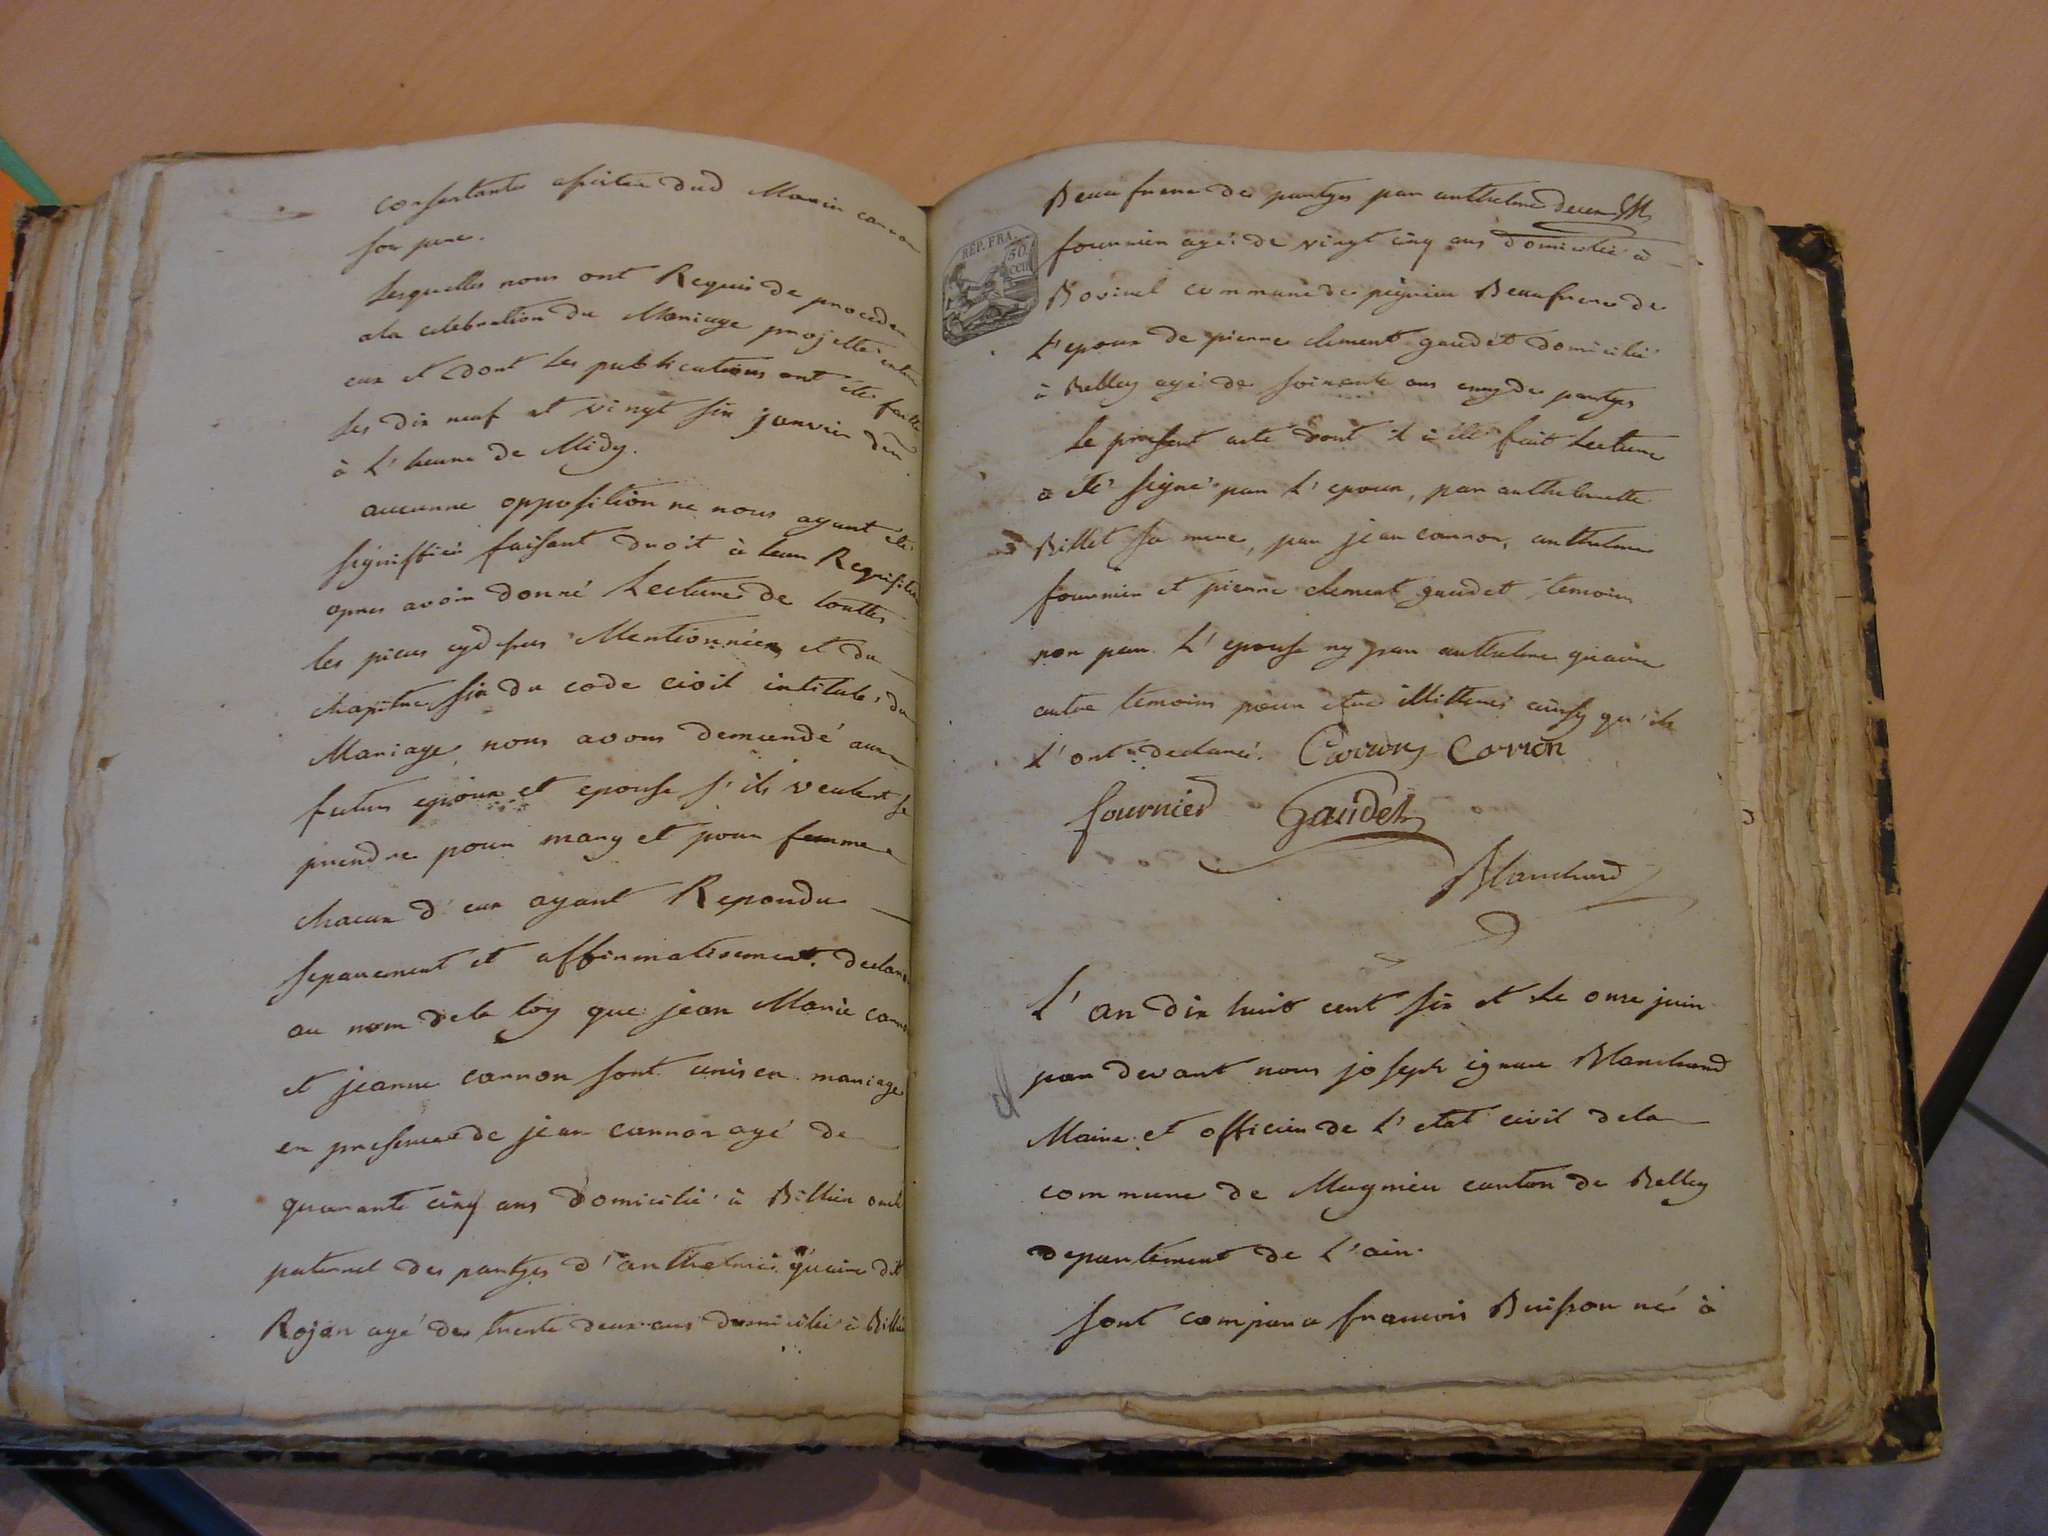 consertante assistée dud Marin carron
son pere.
Lesquelles nous ont Requis de proceder
a la celebration du Mariage projetté entre
eux et dont les publications ont étés faittes
les dix neuf et vingt six janvier der.
à L'heure de Midy.
aucunne opposition ne nous ayant été
signiffiée faisant droit à leur Requisition
apres avoir donné Lecture de touttes
les pieces cydessus Mentionnées et du
chapitre six du code civil intitulé, du
Mariage, nous avons demandé aux
futurs epoux et epouse s'ils veulent se
prendre pour mary et pour femme
chacun d'eux ayant Repondu
separement et affirmativement. declare
au nom dela loy que jean Marie carron
et jeanne carron sont unis en mariage
en presence de jean carron agé de
quarante cinq ans Domicilié à Billieu oncle
paternel des partyes d'anthelme guaine dit
Rojon agé de trente deux ans domicilié à Billieu
Beaufrere des partyes par anthelme
fournier agé de vingt cinq ans Domicilié à
Bovinel commune de peyrieu Beaufrere de
L'epoux de pierre clement gaudet domicilié
à Belley agé de soixante ans amy des partyes
Le present acte dont il a été fait Lecture
a été signé par L'epoux, par anthelmette
Billet sa mere, par jean carron, anthelme
fournier et pierre clement gaudet temoins
non par L'epouse ny par anthelme guaine
autre temoins pour etre illitterés ainsy qu'ils
L'ont declaré. Carron Carron
fournier Gaudet
Blanchard
REP. FRA.
50
CEN
L'an dix huit cent six et le onze juin
par devant nous joseph ignace Blanchard
Maire et officier de L'etat civil dela
commune de Magnieu canton de Belley
departement de L'ain.
sont comparu francois Buisson né à